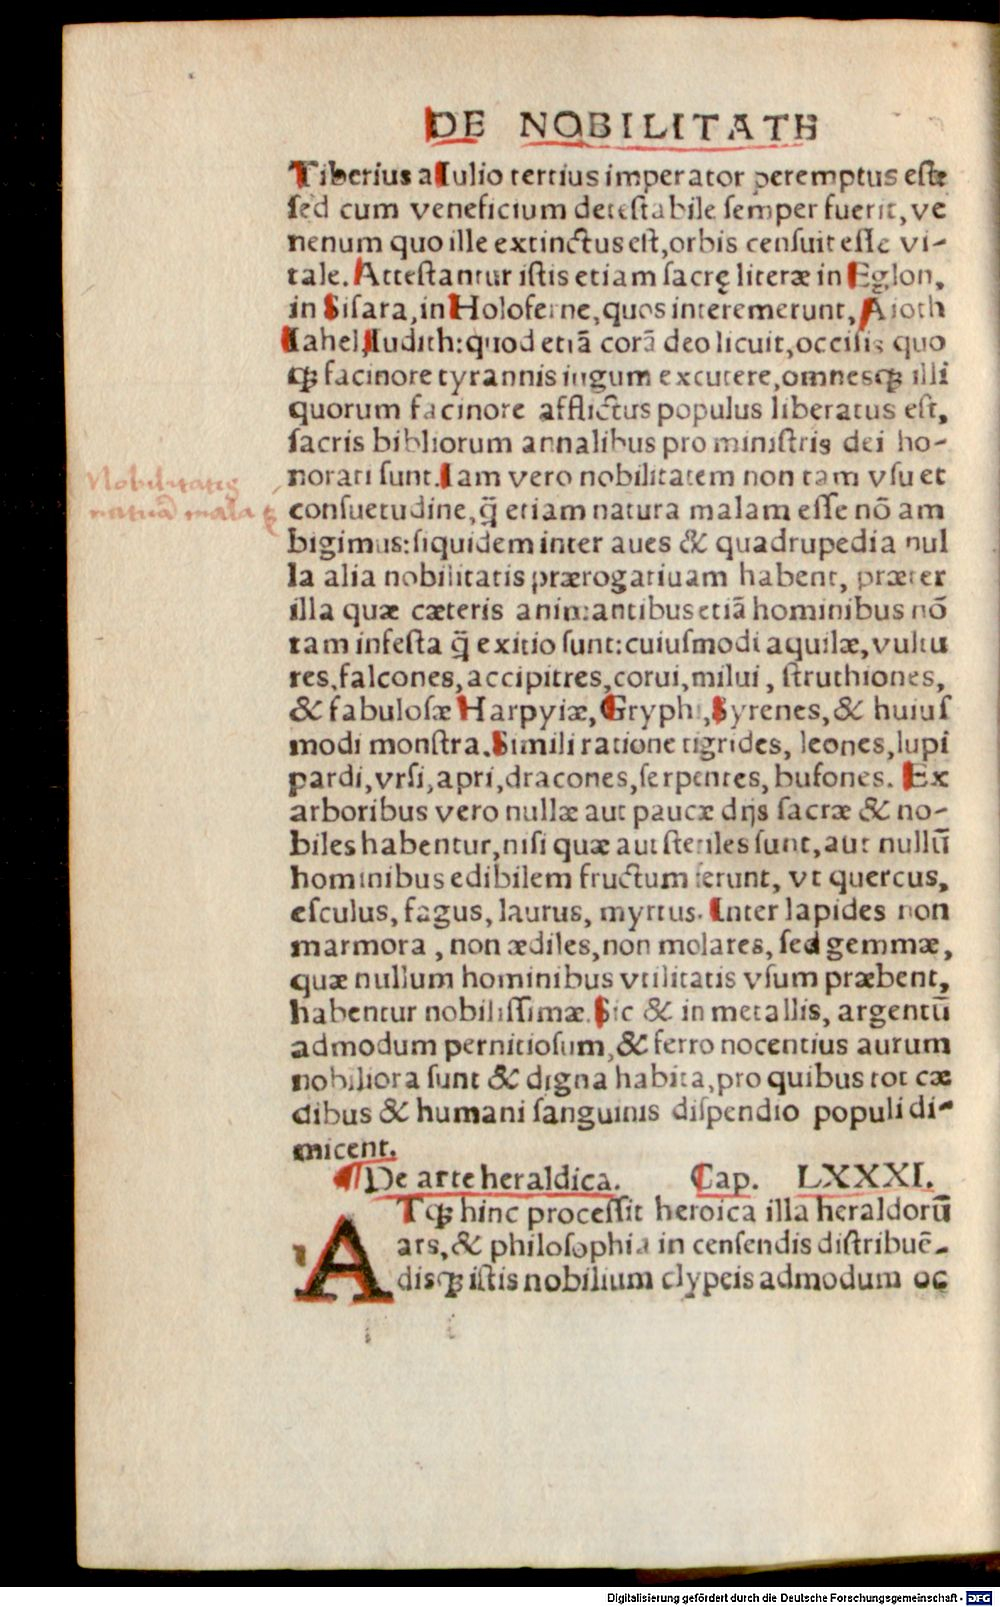 DE NOBILITATE
Tiberius a Iulio tertius imperator peremptus est:
ſed cum veneficium deteſtabile ſemper fuerit, ve
nenum quo ille extinctus eſt, orbis cenſuit eſſe vi-
tale. Atteſtantur iſtis etiam ſacrę literæ in Eglon,
in Siſara, in Holoferne, quos interemerunt, Aioth
Iahel, Iudith: quod etiā corā deo licuit, occiſis quo
qꝫ facinore tyrannis iugum excutere, omnesqꝫ illi
quorum facinore afflictus populus liberatus eſt,
ſacris bibliorum annalibus pro miniſtris dei ho-
norati ſunt. Iam vero nobilitatem non tam vſu et
conſuetudine, q̃ etiam natura malam eſſe nō am
bigimus: ſiquidem inter aues & quadrupedia nul
la alia nobilitatis prærogatiuam habent, præter
illa quæ cæteris animantibus etiā hominibus nō
tam infeſta q̃ exitio ſunt: cuiuſmodi aquilæ, vultu
res, falcones, accipitres, corui, milui, ſtruthiones,
& fabuloſæ Harpyiæ, Gryphi, Syrenes, & huiuſ
modi monſtra. Simili ratione tigrides, leones, lupi
pardi, vrſi, apri, dracones, ſerpentes, bufones. Ex
arboribus vero nullæ aut paucæ dijs ſacræ & no-
biles habentur, niſi quæ aut ſteriles ſunt, aut nullū
hominibus edibilem fructum ferunt, vt quercus,
eſculus, fagus, laurus, myrtus. Inter lapides non
marmora, non ædiles, non molares, ſed gemmæ,
quæ nullum hominibus vtilitatis vſum præbent,
habentur nobiliſſimæ. Sic & in metallis, argentū
admodum pernitioſum, & ferro nocentius aurum
nobiliora ſunt & digna habita, pro quibus tot cæ
dibus & humani ſanguinis diſpendio populi di-
micent.
¶De arte heraldica. Cap. LXXXI.
ATqꝫ hinc proceſſit heroica illa heraldorū
ars, & philoſophia in cenſendis diſtribuē-
disqꝫ iſtis nobilium clypeis admodum oc
Nobilitatis
natura mala
Digitalisierung gefördert durch die Deutsche Forschungsgemeinschaft - DFG